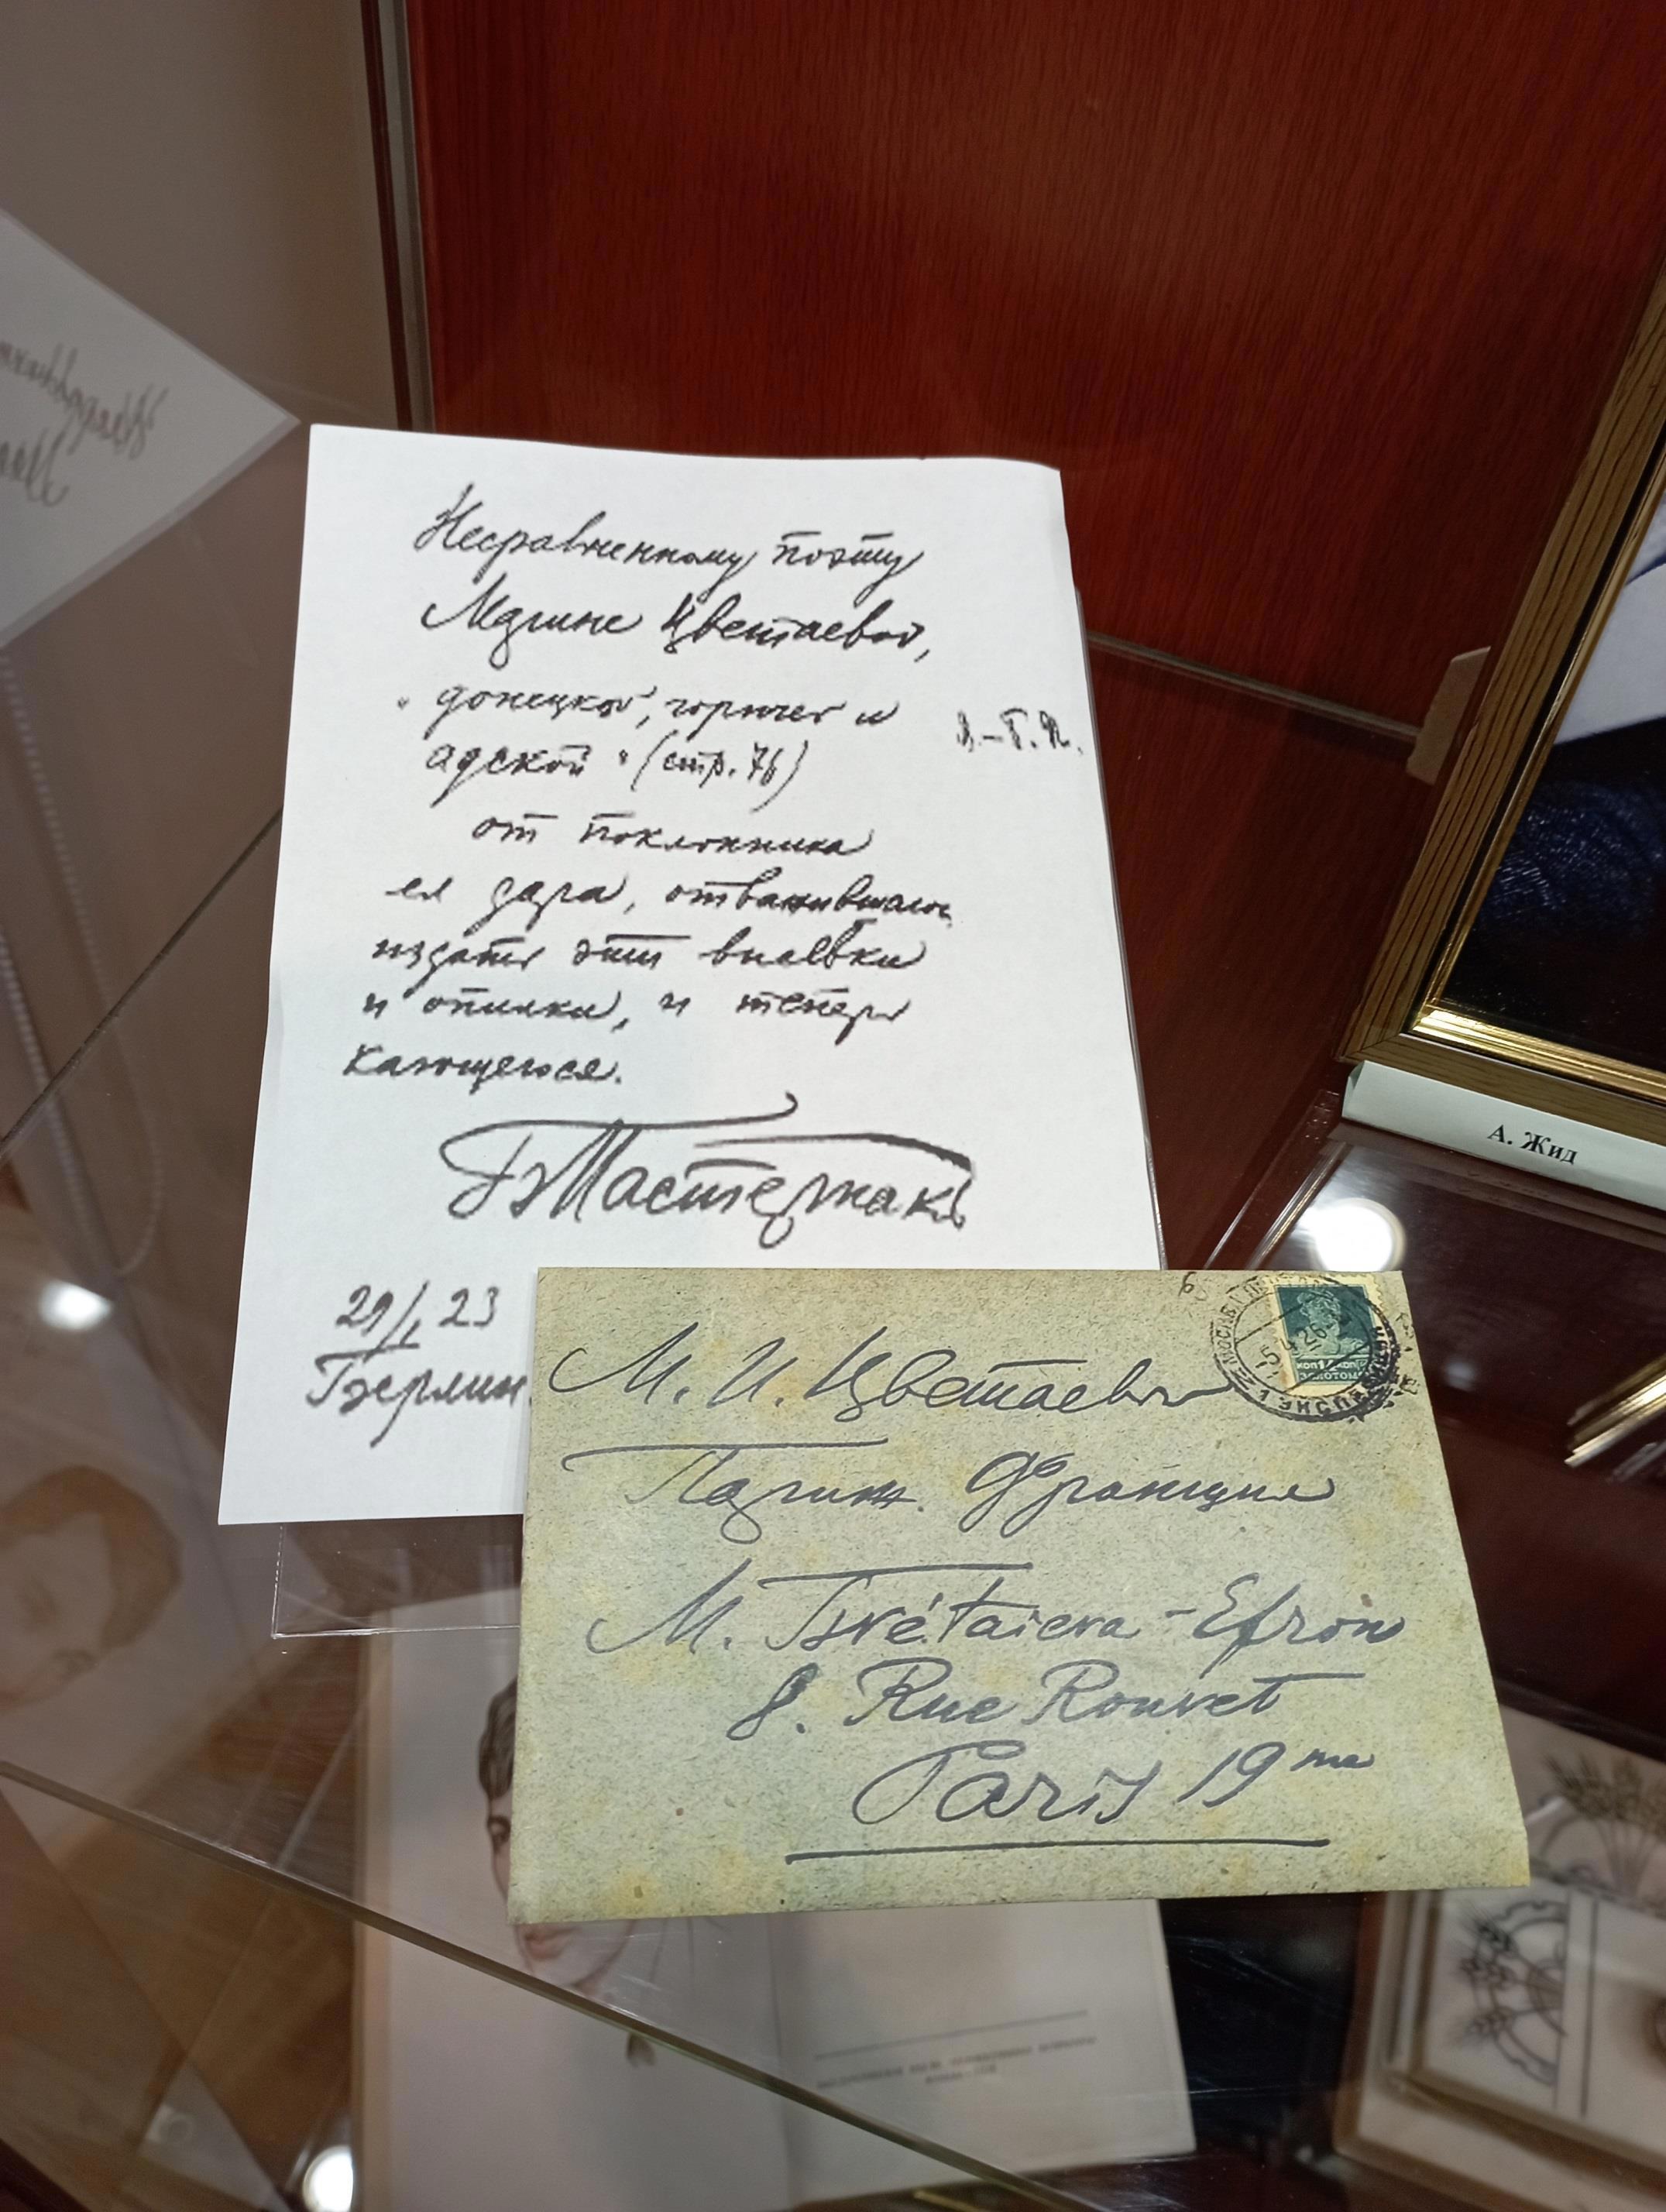 Несравненному поэту
Марине Цветаевой,
„донецкой, горючей и
адской“ (стр. 76)
от поклонника
ея дара, отважившагося
издать эти высевки
и опилки, и теперь
кающегося.
Б Пастернакъ
29/I 23
Берлин.
М. И. Цветаевой
Париж. Франция
M. Tsvétaieva-Efron
8. Rue Rouvet
Paris 19me
КОП
ЗОЛОТОМ
А. Жид